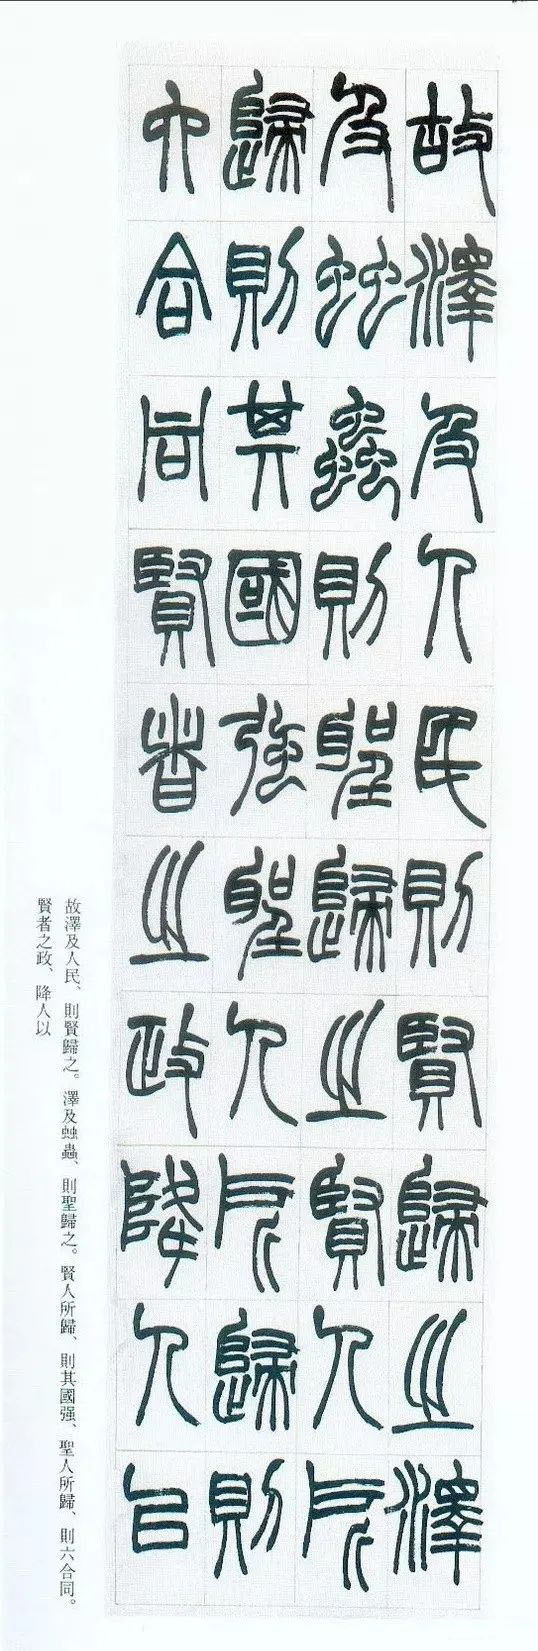 故澤及人民則賢歸之澤
及䖵蟲則聖歸之賢人所
歸則其國强聖人所歸則
六合同賢者之政降人以
故澤及人民、則賢歸之。澤及䖵蟲、則聖歸之。賢人所歸、則其國强、聖人所歸、則六合同。
賢者之政、降人以